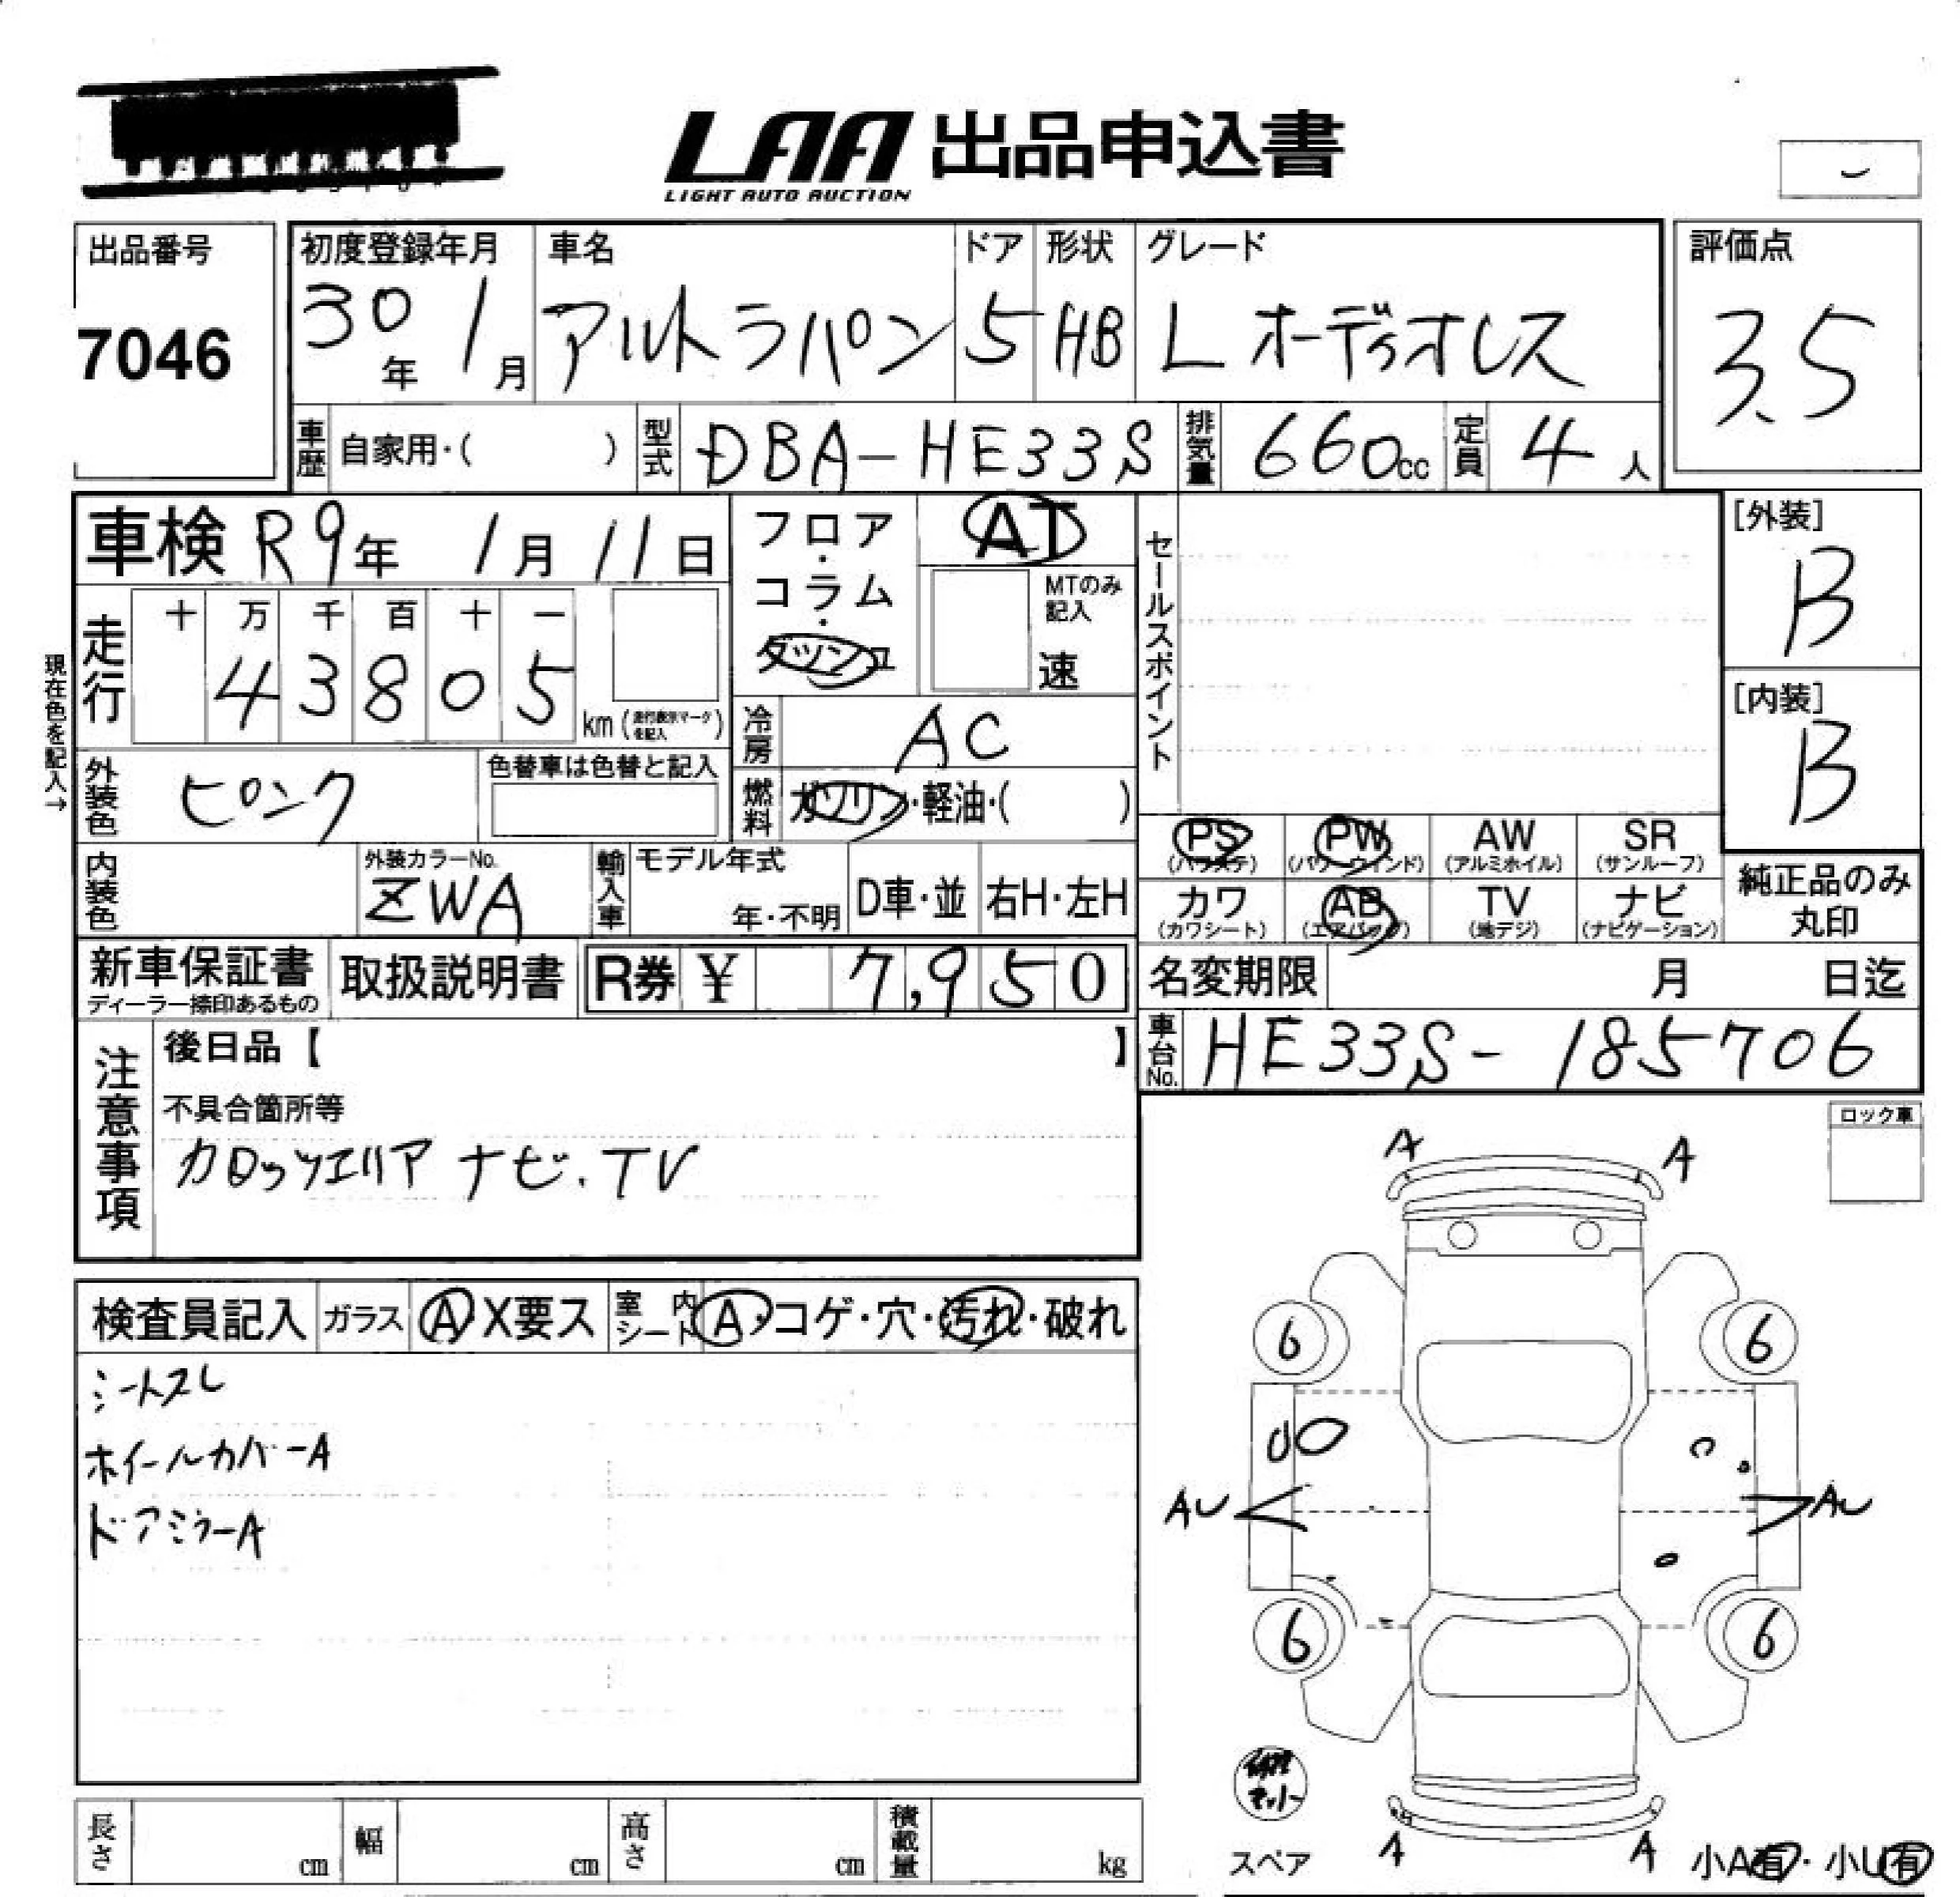 LAA 出品申込書
LIGHT AUTO AUCTION
出品番号
7046
初度登録年月
30年 1月
車名
アルトラパン
ドア
5
形状
HB
グレード
L オーディオレス
評価点
3.5
車歴 自家用・( )
型式 DBA-HE33S
排気量 660cc
定員 4人
車検 R9年 1月 11日
フロア・コラム・ダッシュ
AT
MTのみ記入
速
セールスポイント
[外装]
B
[内装]
B
走行
十 万 千 百 十 一
4 3 8 0 5 km (走行表示マークを記入)
現在色を記入→
冷房 AC
外装色 ピンク
色替車は色替と記入
燃料 ガソリン・軽油・( )
内装色
外装カラーNo.
ZWA
輸入車
モデル年式
年・不明
D車・並
右H・左H
PS (パワステ)
PW (パワーウィンド)
AW (アルミホイル)
SR (サンルーフ)
カワ (カワシート)
AB (エアバッグ)
TV (地デジ)
ナビ (ナビゲーション)
純正品のみ丸印
新車保証書
ディーラー捺印あるもの
取扱説明書
R券 ¥ 7,950
名変期限 月 日迄
車台No. HE33S-185706
注意事項
後日品【 】
不具合箇所等
カロッツェリア ナビ.TV
ロック車
検査員記入
ガラス A X要ス
室内シート A・コゲ・穴・汚れ・破れ
シートスレ
ホイールカバーA
ドアミラーA
A A
6 6
AU AU
6 6
A A
スペア
小A有・小U有
長さ cm
幅 cm
高さ cm
積載量 kg